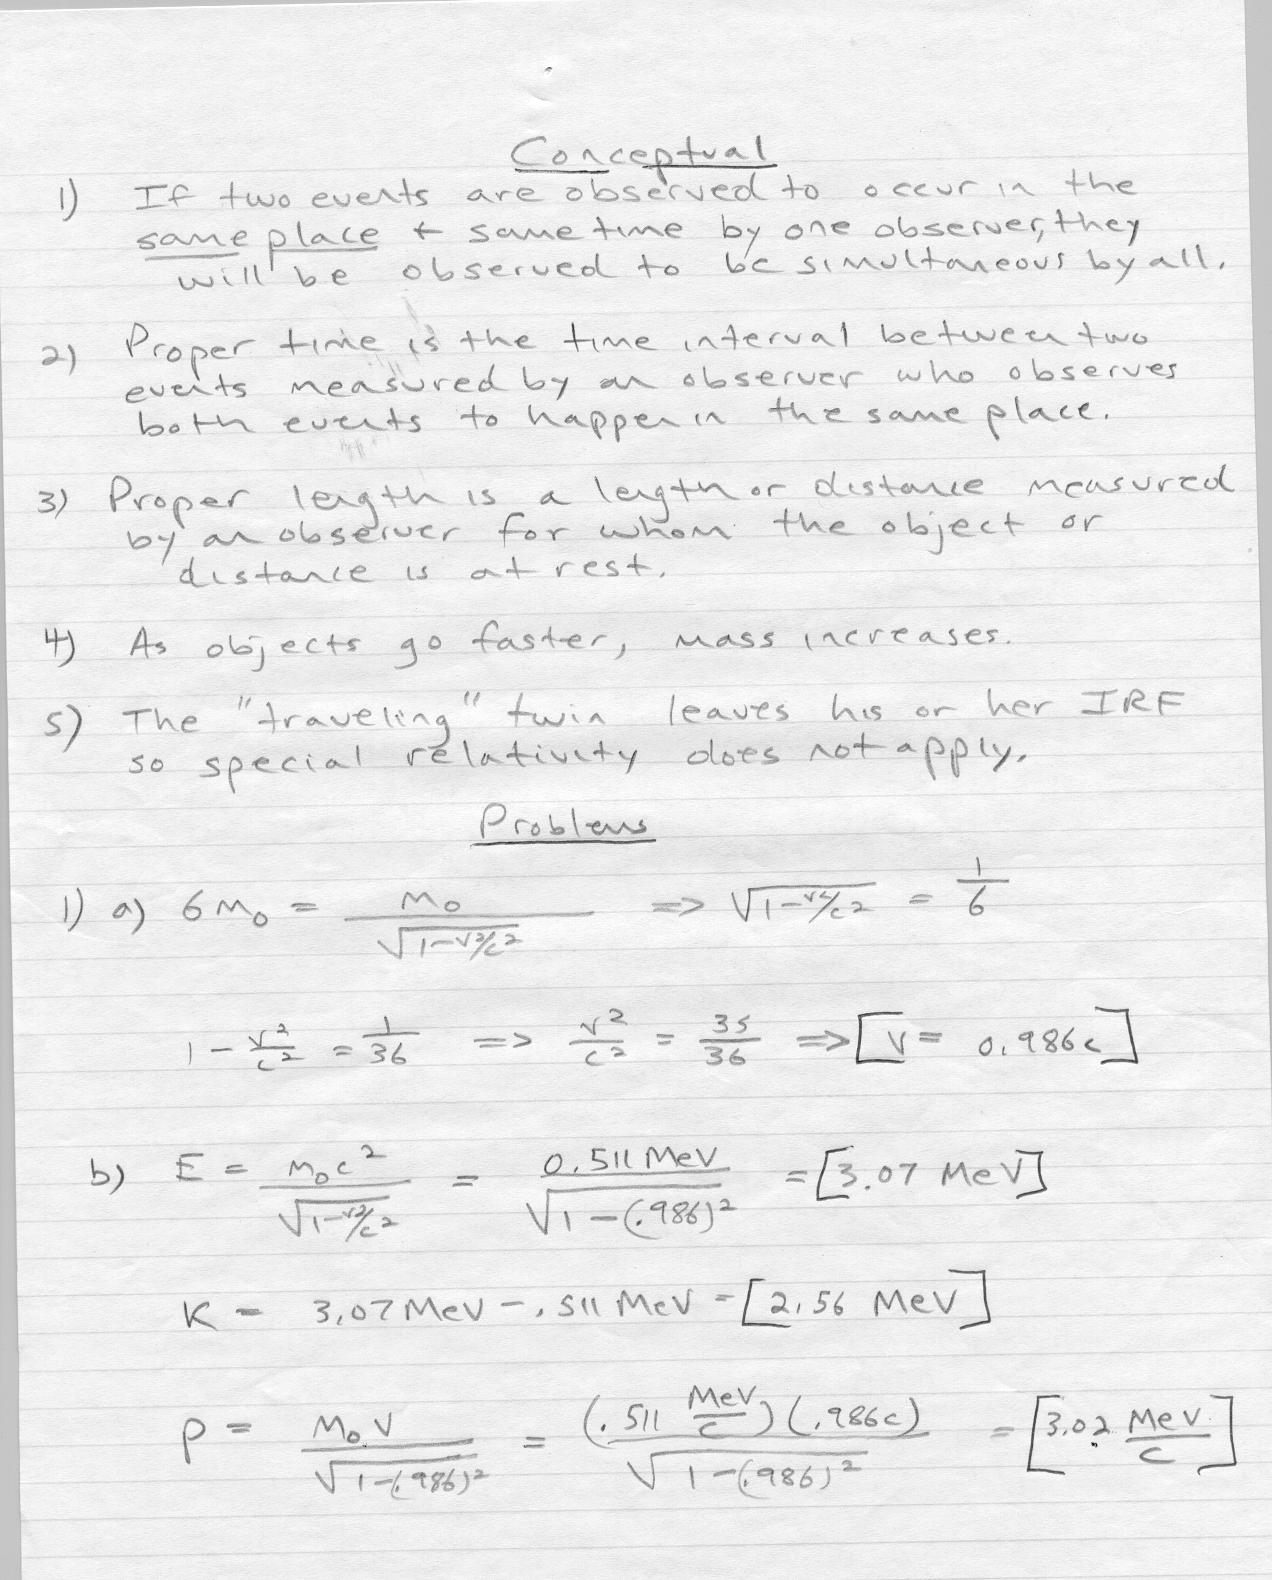 Conceptual
1) If two events are observed to occur in the
same place + same time by one observer, they
will be observed to be simultaneous by all.
2) Proper time is the time interval between two
events measured by an observer who observes
both events to happen in the same place.
3) Proper length is a length or distance measured
by an observer for whom the object or
distance is at rest.
4) As objects go faster, mass increases.
5) The "traveling" twin leaves his or her IRF
so special relativity does not apply.
Problems
1) a) 6 M₀ = M₀ / √(1-v²/c²) => √(1-v²/c²) = 1/6
1 - v²/c² = 1/36 => v²/c² = 35/36 => [v = 0.986c]
b) E = M₀c² / √(1-v²/c²) = 0.511 MeV / √(1-(.986)²) = [3.07 MeV]
K = 3.07 MeV - .511 MeV = [2.56 MeV]
p = M₀v / √(1-(.986)²) = (.511 MeV/c)(.986c) / √(1-(.986)²) = [3.02 MeV/c]